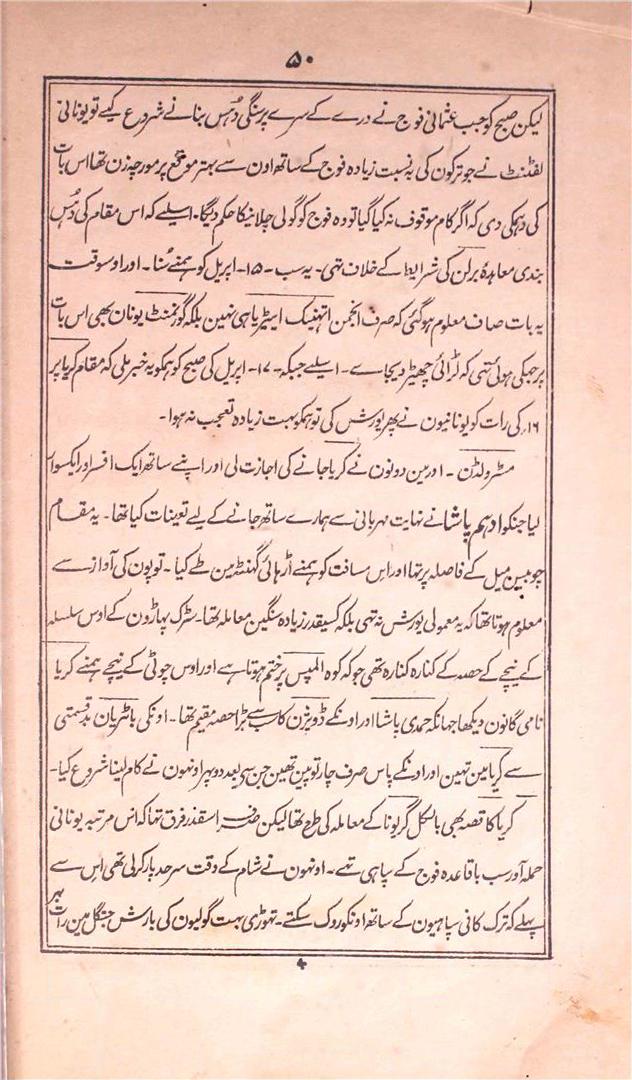 ۵۰
لیکن صبح کو جب عثمانی فوج نے درے کے سرے پر سنگی دُمس بنانے شروع کیے تو یونانی
لفٹنٹ نے جو ترکون کی بہ نسبت زیادہ فوج کے ساتھ اون سے بہتر موقع پر مورچہ زن تھا اس بات
کی دہمکی دی کہ اگر کام موقوف نہ کیا گیا تو وہ فوج کو گولی چلانیکا حکم دیگا۔ اسلیے کہ اس مقام کی دُمس
بندی معاہدۂ برلن کی شرایط کے خلاف تہی۔ یہ سب ۔ ۱۵۔ اپریل کو ہمنے سُنا ۔ اور اوسوقت
یہ بات صاف معلوم ہوگئی کہ صرف انجمن اتھنیک اسیٹریا ہی نہین بلکہ گورنمنٹ یونان بھی اس بات
پر جھکی ہوئی تہی کہ لڑائی چھیڑ دیجاے ۔ اسلیے جبکہ ۔ ۱۷۔ اپریل کی صبح کو ہمکو یہ خبر ملی کہ مقام کریا پر
۱۶؍ کی رات کو یونانیون نے پھر یورش کی تو ہمکو بہت زیادہ تعجب نہ ہوا۔
مسٹر ولڈن ۔ اور مین دونون نے کریا جانے کی اجازت لی اور اپنے ساتھ ایک افسر اور ایکسوار
لیا جنکو ادہم پاشا نے نہایت مہربانی سے ہمارے ساتھ جانے کے لیے تعینات کیا تھا۔ یہ مقام
چوبیس میل کے فاصلہ پر تہا اور اس مسافت کو ہمنے اڑہائی گھنٹہ مین طے کیا ۔ توپون کی آواز سے
معلوم ہوتا تھا کہ یہ معمولی یورش نہ تہی بلکہ کسیقدر زیادہ سنگین معاملہ تھا۔ سڑک پہاڑون کے اوس سلسلہ
کے نیچے کے حصہ کے کنارہ کنارہ تھی جو کہ کوہ المپس پر ختم ہوتا ہے اور اوس چوٹی کے نیچے ہمنے کریا
نامی گانون دیکھا جہانکہ حمدی پاشا اور اونکے ڈویژن کا سب سے بڑا حصہ مقیم تھا۔ اونکی باٹریان بدقسمتی
سے کریا مین تہین اور اونکے پاس صرف چار توپین تھین جن سے بعد دوپہر اونہون نے کام لینا شروع کیا۔
کریا کا قصہ بھی بالکل گریونا کے معاملہ کی طرح تھا لیکن صرف اسقدر فرق تہا کہ اس مرتبہ یونانی
حملہ آور سب باقاعدہ فوج کے سپاہی تہے ۔ اونہون نے شام کے وقت سرحد پار کرلی تھی اس سے
پہلے کہ ترک کافی سپاہیون کے ساتھ اونکو روک سکتے ۔ تھوڑی بہت گولیون کی بارش جنگل مین رات بھر
۴